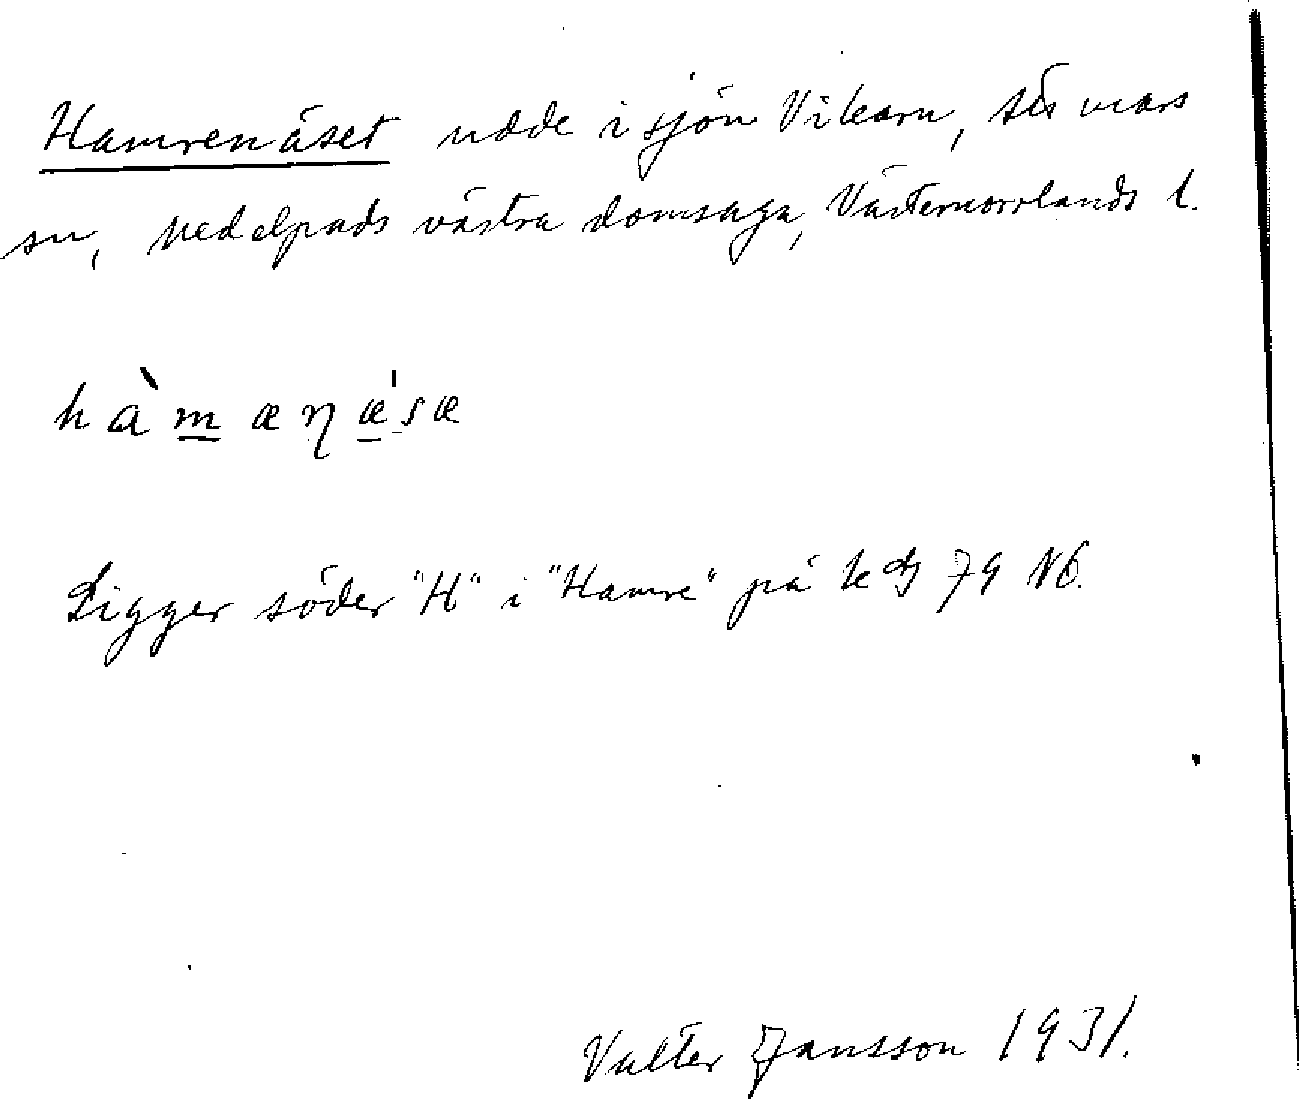 Hamrenäset udde i sjön Vikarn, Stö mars
sn, Medelpads västra domsaga, Västernorrlands l.
hàmæŋæ'sæ
Ligger söder "H" i "Hamre" på kbl 79 NO.
Valter Jansson 1931.